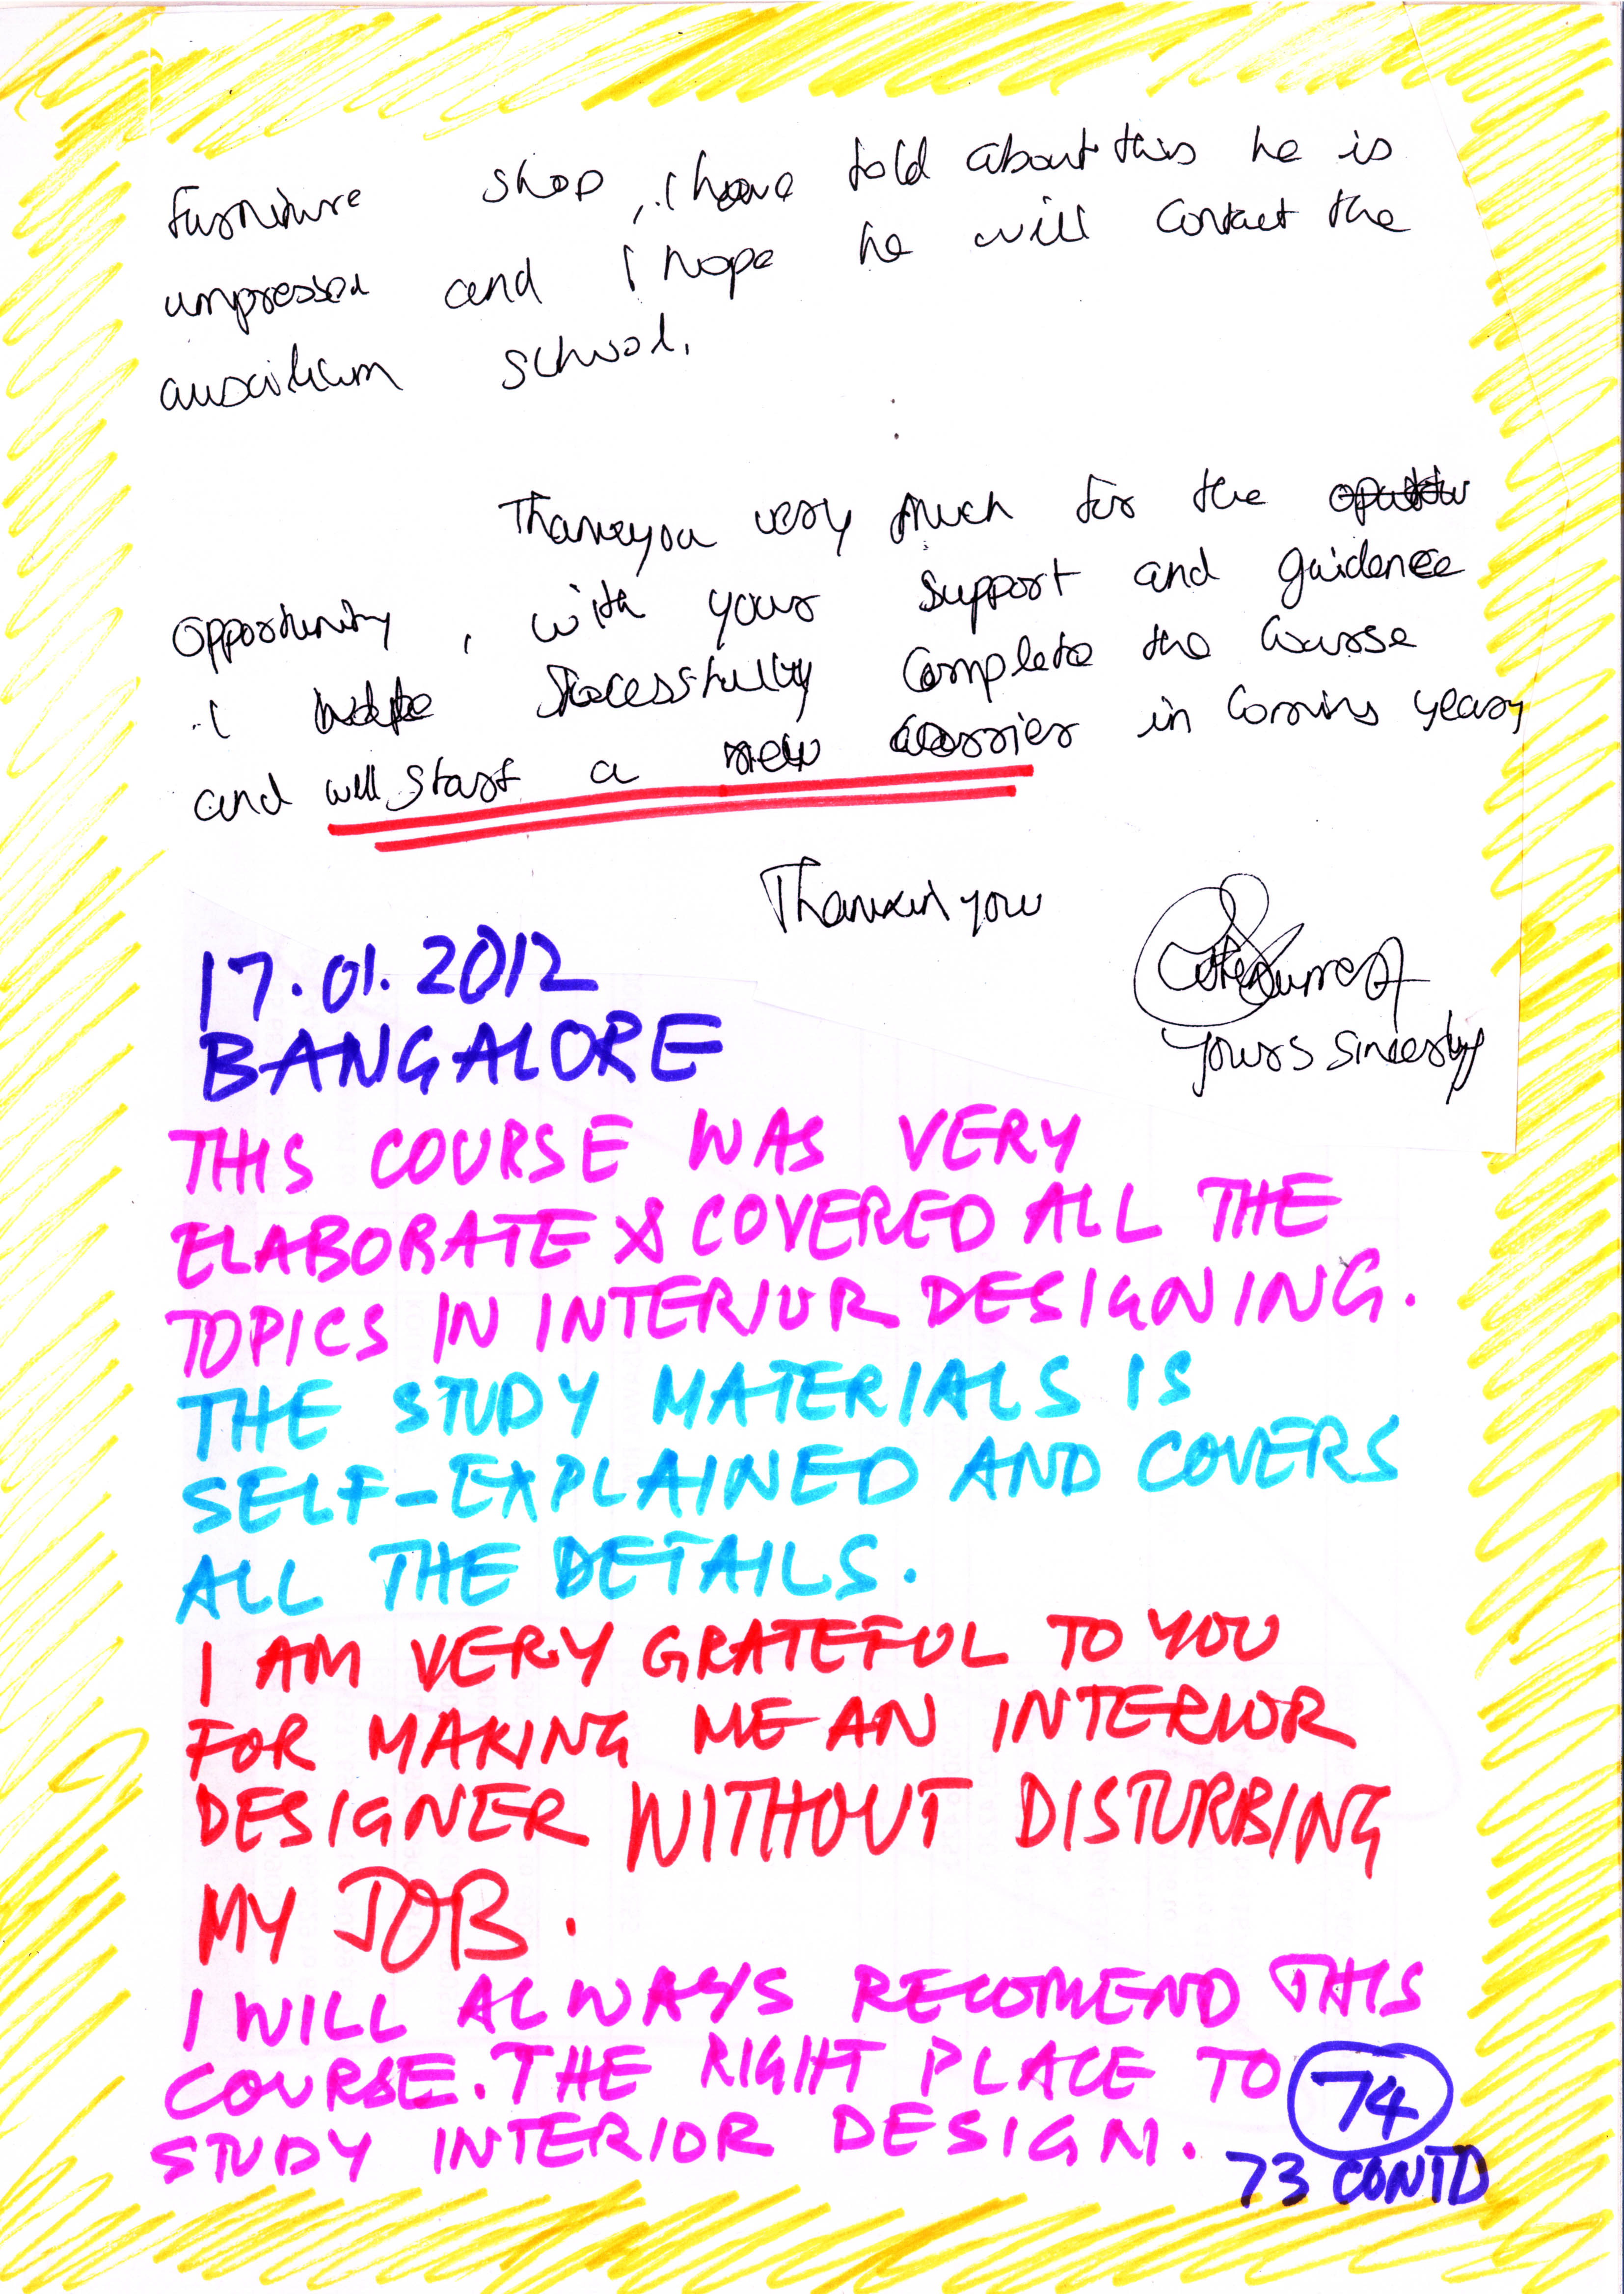 furniture shop, i have told about this he is
impressed and i hope he will contact the
auxilium school.
Thankyou very much for the
opportunity, with your support and guidence
i successfully complete the course
and will start a new carrier in coming years
Thank you
17.01.2012
BANGALORE
Yours sincerly
THIS COURSE WAS VERY
ELABORATE & COVERED ALL THE
TOPICS IN INTERIOR DESIGNING.
THE STUDY MATERIALS IS
SELF-EXPLAINED AND COVERS
ALL THE DETAILS.
I AM VERY GRATEFUL TO YOU
FOR MAKING ME AN INTERIOR
DESIGNER WITHOUT DISTURBING
MY JOB.
I WILL ALWAYS RECOMEND THIS
COURSE. THE RIGHT PLACE TO
STUDY INTERIOR DESIGN.
74
73 CONTD